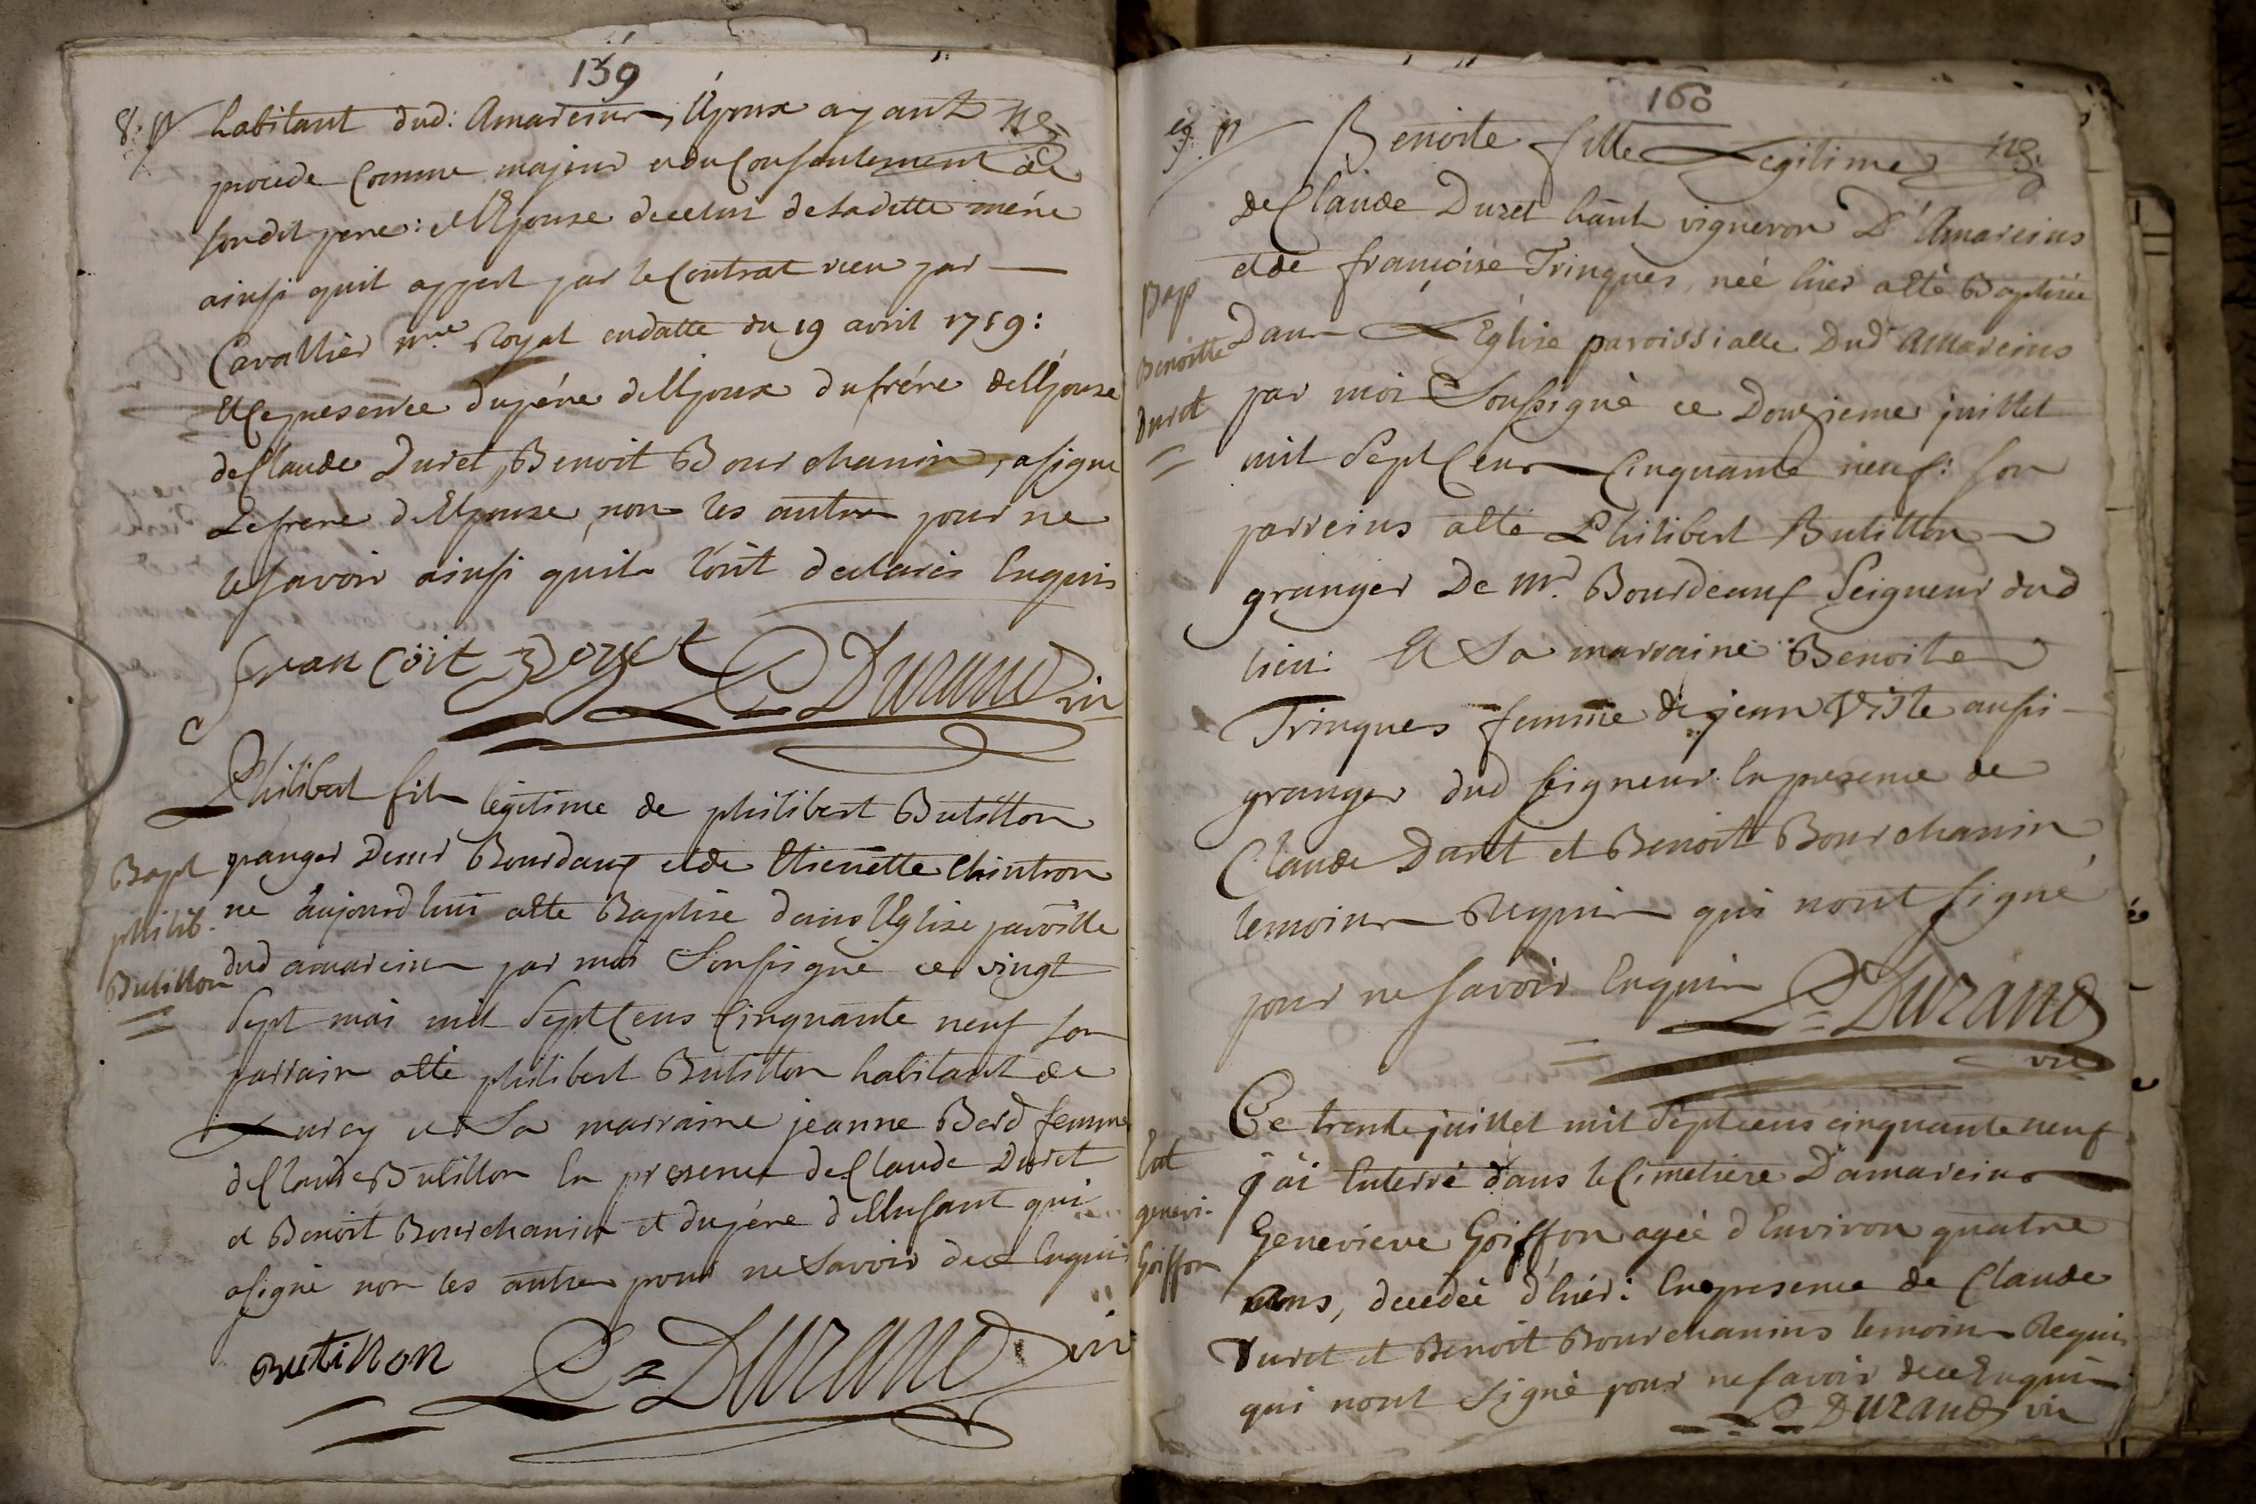 139
8: p
habitant dud: Amareins, L'Epoux ayant
procede Comme majeur et du Consentement de
son dit pere: et L'Epouse de celui de sa ditte mére
ainsi quil appert par le Contrat receu par
Cavallier nre Royal en datte du 19 avril 1759:
Et en presence du pére de l'Epoux du frére de l'Epouse
de Claude Duret, Benoit Bourchanin, a signé
Le frere de l'Epouse, non les autres pour ne
le savoir ainsi quils l'ont declarés Enquis
francoit
L DURAND vic
Bapt
philib.
Butillon
Philibert fils legitime de philibert Butillon
granger de mr Bourdeaux et de Etienette Chintron
né aujourdhui a été Baptisé dans l'Eglise paroislle
dud amareins par moi Soussigné ce vingt
sept mai mil Sept Cens Cinquante neuf son
parrain a été philibert Butillon habitant de
Lurcy et Sa marraine jeanne Berd femme
de Claude Butillon En presence de Claude Duret
et Benoit Bourchanin et du pére de l'Enfant qui
a signé non les autres pour ne savoir de ce Enquis
Butillon
L DURAND vic
160
9. p
Bap
Benoitte
Duret
Benoite fille Legitime
de Claude Duret habnt vigneron D'Amareins
et de françoise Trinques, née hier a été Baptisée
Dans L'Eglise paroissialle Dud Amareins
par moi Soussigné ce Douzieme juillet
mil Sept Cens Cinquante neuf: son
parreins a été Philibert Butillon
granger De Mr. Bourdeaux Seigneur dud
lieu: Et Sa marraine Benoite
Trinques femme de jean Viste aussi
granger dud seigneur. En presence de
Claude Duret et Benoit Bourchanin
temoins Requis qui n'ont signé
pour ne savoir Enquis L DURAND
vic
Ent
genevi.
Goiffon
Ce trente juillet mil Sept cens cinquante neuf
j'ai Enterré dans le Cimetiere D'amareins
Genevieve Goiffon agée d'Environ quatre
ans, decedée d'hiér: En presence de Claude
Duret et Benoit Bourchanins temoins Requis
qui n'ont signé pour ne savoir de ce Enquis
L DURAND vic